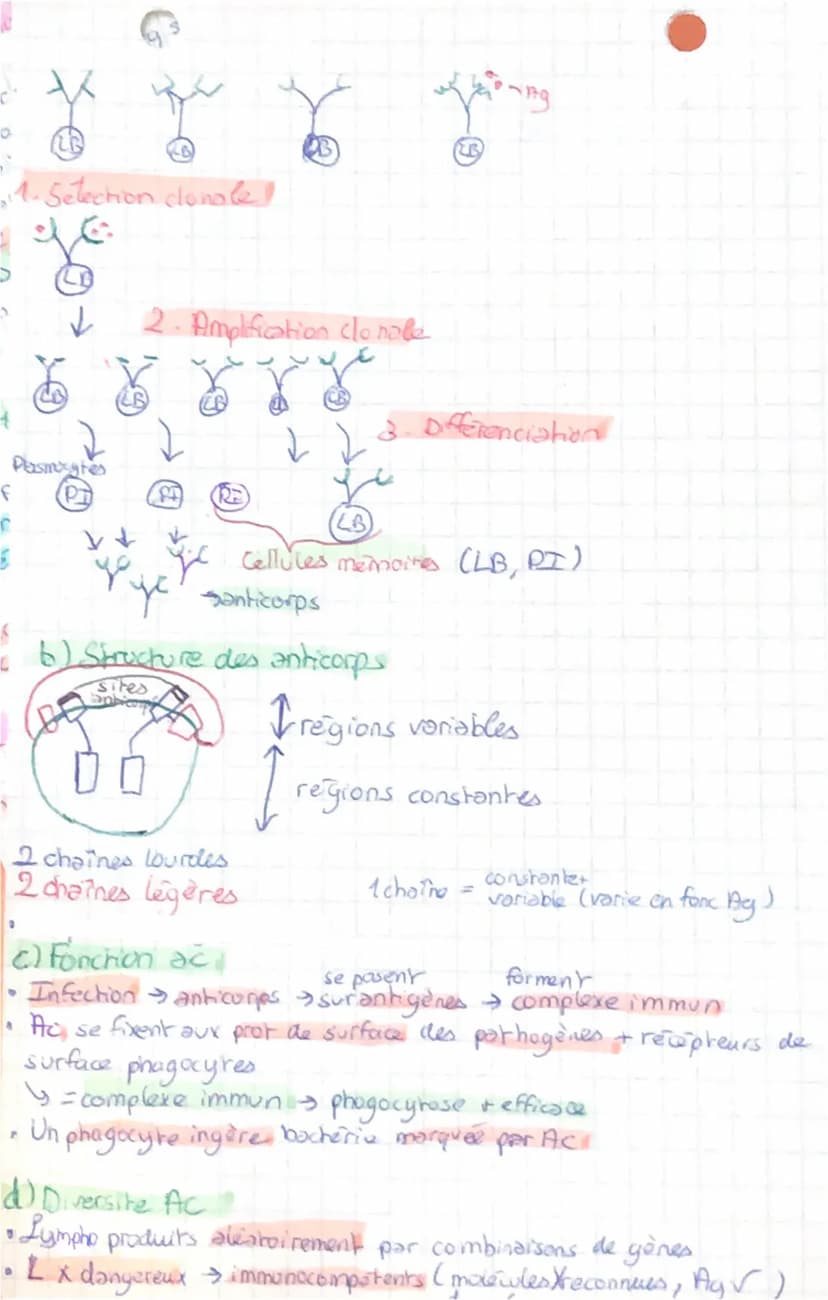 LB LB LB LB → Ag
1. Sélection clonale
LB
2. Amplification clonale
LB LB LB LB LB
3. Différenciation
Plasmocytes
PI PI PI LB
Cellules mémoires (LB, PI)
→ anticorps
b) Structure des anticorps
sites
régions variables
régions constantes
2 chaînes lourdes
2 chaînes légères
1 chaîne = constante +
variable (varie en fonc Ag)
c) Fonction ac
se posent forment
• Infection → anticorps → sur antigènes → complexe immun
• Ac se fixent aux prot de surface des pathogènes + récepteurs de
surface phagocytes
↳ = complexe immun → phagocytose + efficace
• Un phagocyte ingère bactérie marquée par Ac
d) Diversité AC
• Lympho produits aléatoirement par combinaisons de gènes
• L x dangereux → immunocompétents (molécules X reconnues, Ag √)